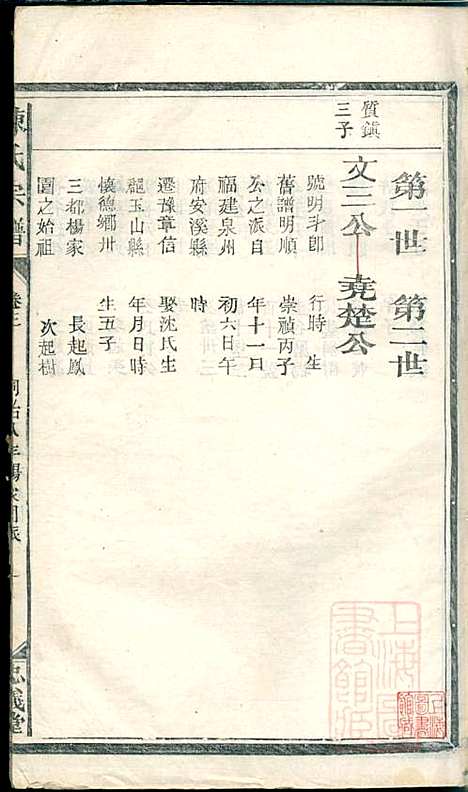 質鎮
三子
第一世 第二世
文三公 堯楚公
號明斗卽
舊譜明順
公之派自
福建泉州
府安溪縣
遷豫章信
龍玉山縣
懷德鄉卅
三都楊家
園之始祖
行時 生
崇禎丙子
年十一口
初六日午
時
娶沈氏生
年月日時
生五子
長起鳳
次起樹
陳氏宗譜
卷三
同治八年楊家園派
忠義堂
上海圖書館藏